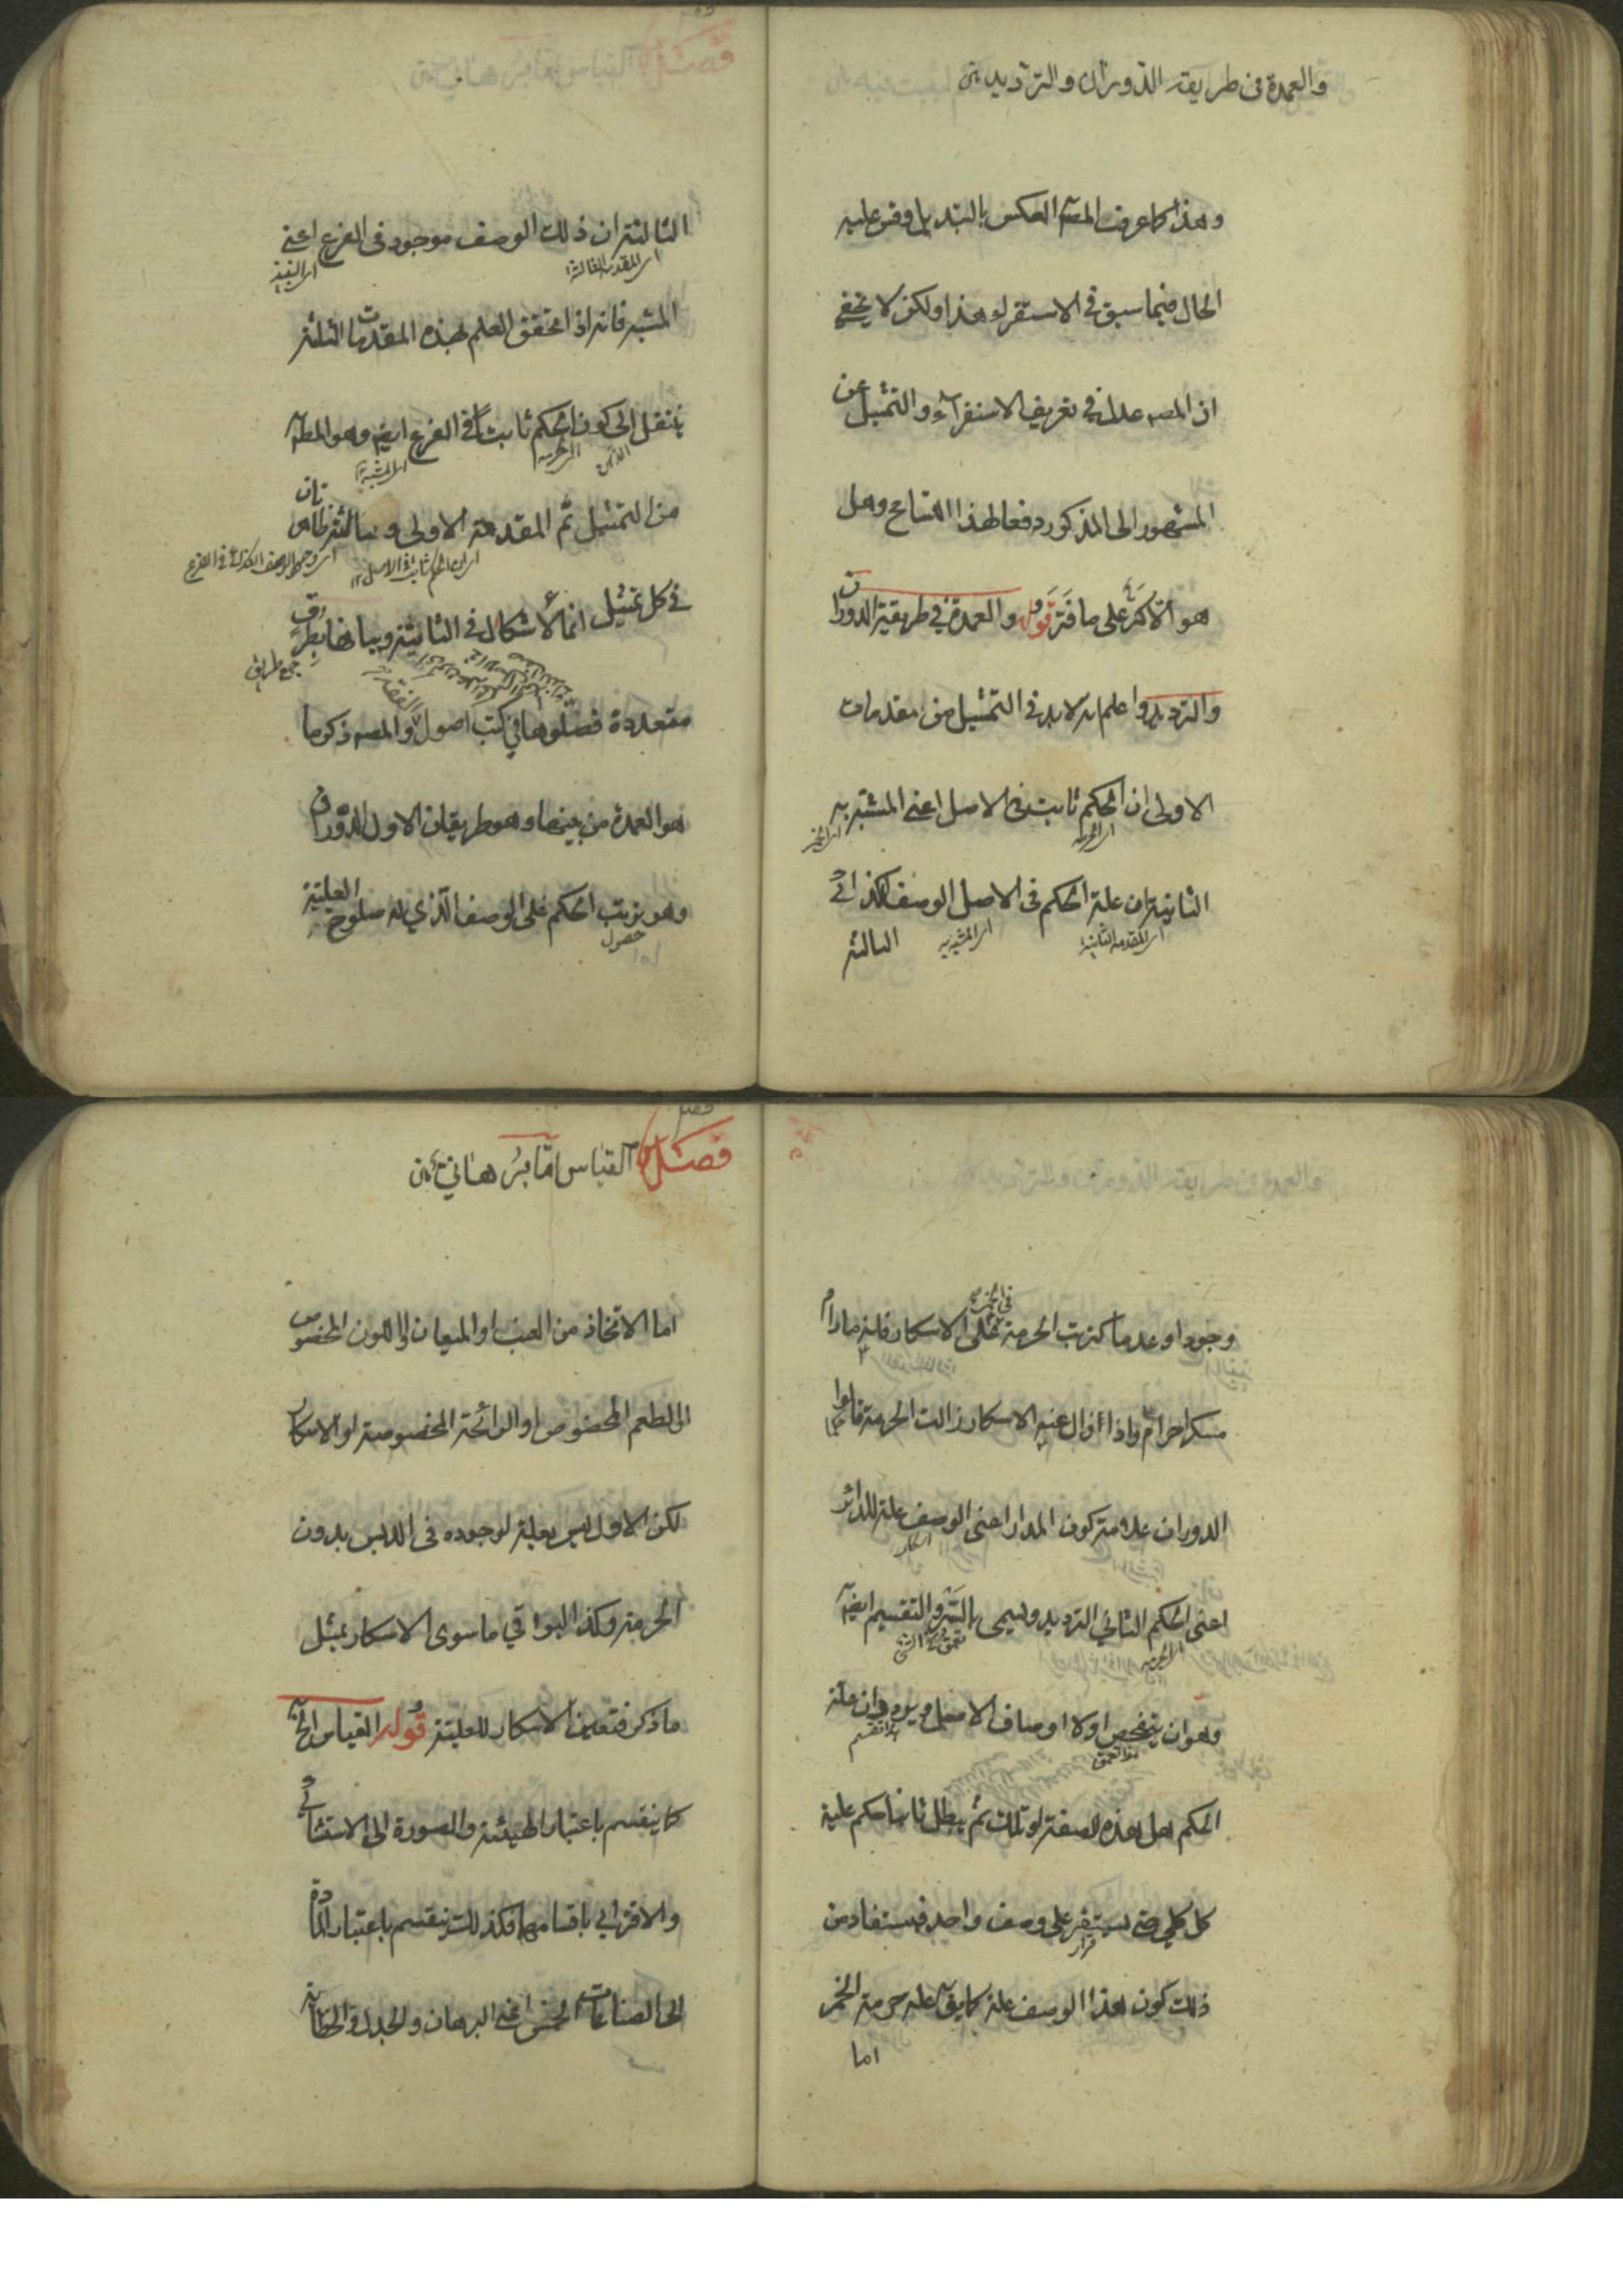 والعمدة فى طريقه الدوران والترديد
وهذا كما عرف المصـ العكس بالتبديل وقس عليه
الحال فيما سبق فى الاستقراء هذا ولكن لا يخفى
ان المصـ عدل فى تعريف الاستقراء والتمثيل عن
المشهور الى المذكور دفعا لهذا التسامح وهل
هو الا كر على ما فر قوله والعمدة فى طريقة الدوران
والترديد واعلم انه لابد فى التمثيل من مقدمات
الاولى ان الحكم ثابت فى الاصل اعنى المشبه به
اى الحرمة
اى الخمر
الثانية ان علة الحكم فى الاصل الوصف الكذائى
اى المقدمة الثانية
اى المشبه به
الثالثة
الثالثة ان ذلك الوصف موجود فى الفرع اعنى
اى المقدمة الثالثة
اى النبيذ
المشبه فانه اذا تحقق العلم بهذه المقدمات الثلثة
ينتقل الى كون الحكم ثابتا فى الفرع ايضا وهو المطـ
الذهن
اى الحرمة
اى المشبه
من التمثيل ثم المقدمة الاولى والثالثة ظاهرتان
اى ان الحكم ثابت فى الاصل ١٢
اى وجود الوصف الكذائى فى الفرع
فى كل تمثيل انما الاشكال فى الثانية وبيانها بطرق
جمع طريق
متعددة فصلوها فى كتب اصول الفقه والمصـ ذكر ما
هو العمدة من بينها وهو طريقان الاول الدوران
وهو ترتب الحكم على الوصف الذي له صلوح العلية
حصول
وجودا وعدما كترتب الحرمة فى الخمر على الاسكار فانه مادام
مسكرا حرام واذا زال عنه الاسكار زالت الحرمة قالوا
الدوران علامة كون المدار اعنى الوصف علة للدائر
اسكار
اعنى الحكم الثاني الترديد ويسمى بالسبر والتقسيم ايضا
الحرمة
وهو ان يتفحص اولا اوصاف الاصل ويردد ان علة
هذا تعمق
هذا تقسيم
الحكم هل هذه الصفة او تلك ثم يبطل ثانيا حكم علية
كل كل حتى يستقر على وصف واحد فيستفاد من
قرار
ذلك كون هذا الوصف علة كما يقـ علة حرمة الخمر
اما
فصل القياس اما برهاني
اما الاتخاذ من العنب او الميعان او اللون المخصوص
او الطعم المخصوص او الرائحة المخصوصة او الاسكار
لكن الاول ليس بعلة لوجوده فى الدبس بدون
الحرمة وكذا البواقي ما سوى الاسكار بمثل
ما ذكر فتعين الاسكار للعلية قوله القياس الخ
كما ينقسم باعتبار الهيئة والصورة الى الاستثنائى
والاقترانى باقسامها فكذلك ينقسم باعتبار المادة
الى الصناعات الخمس اعنى البرهان والجدل والخطابة